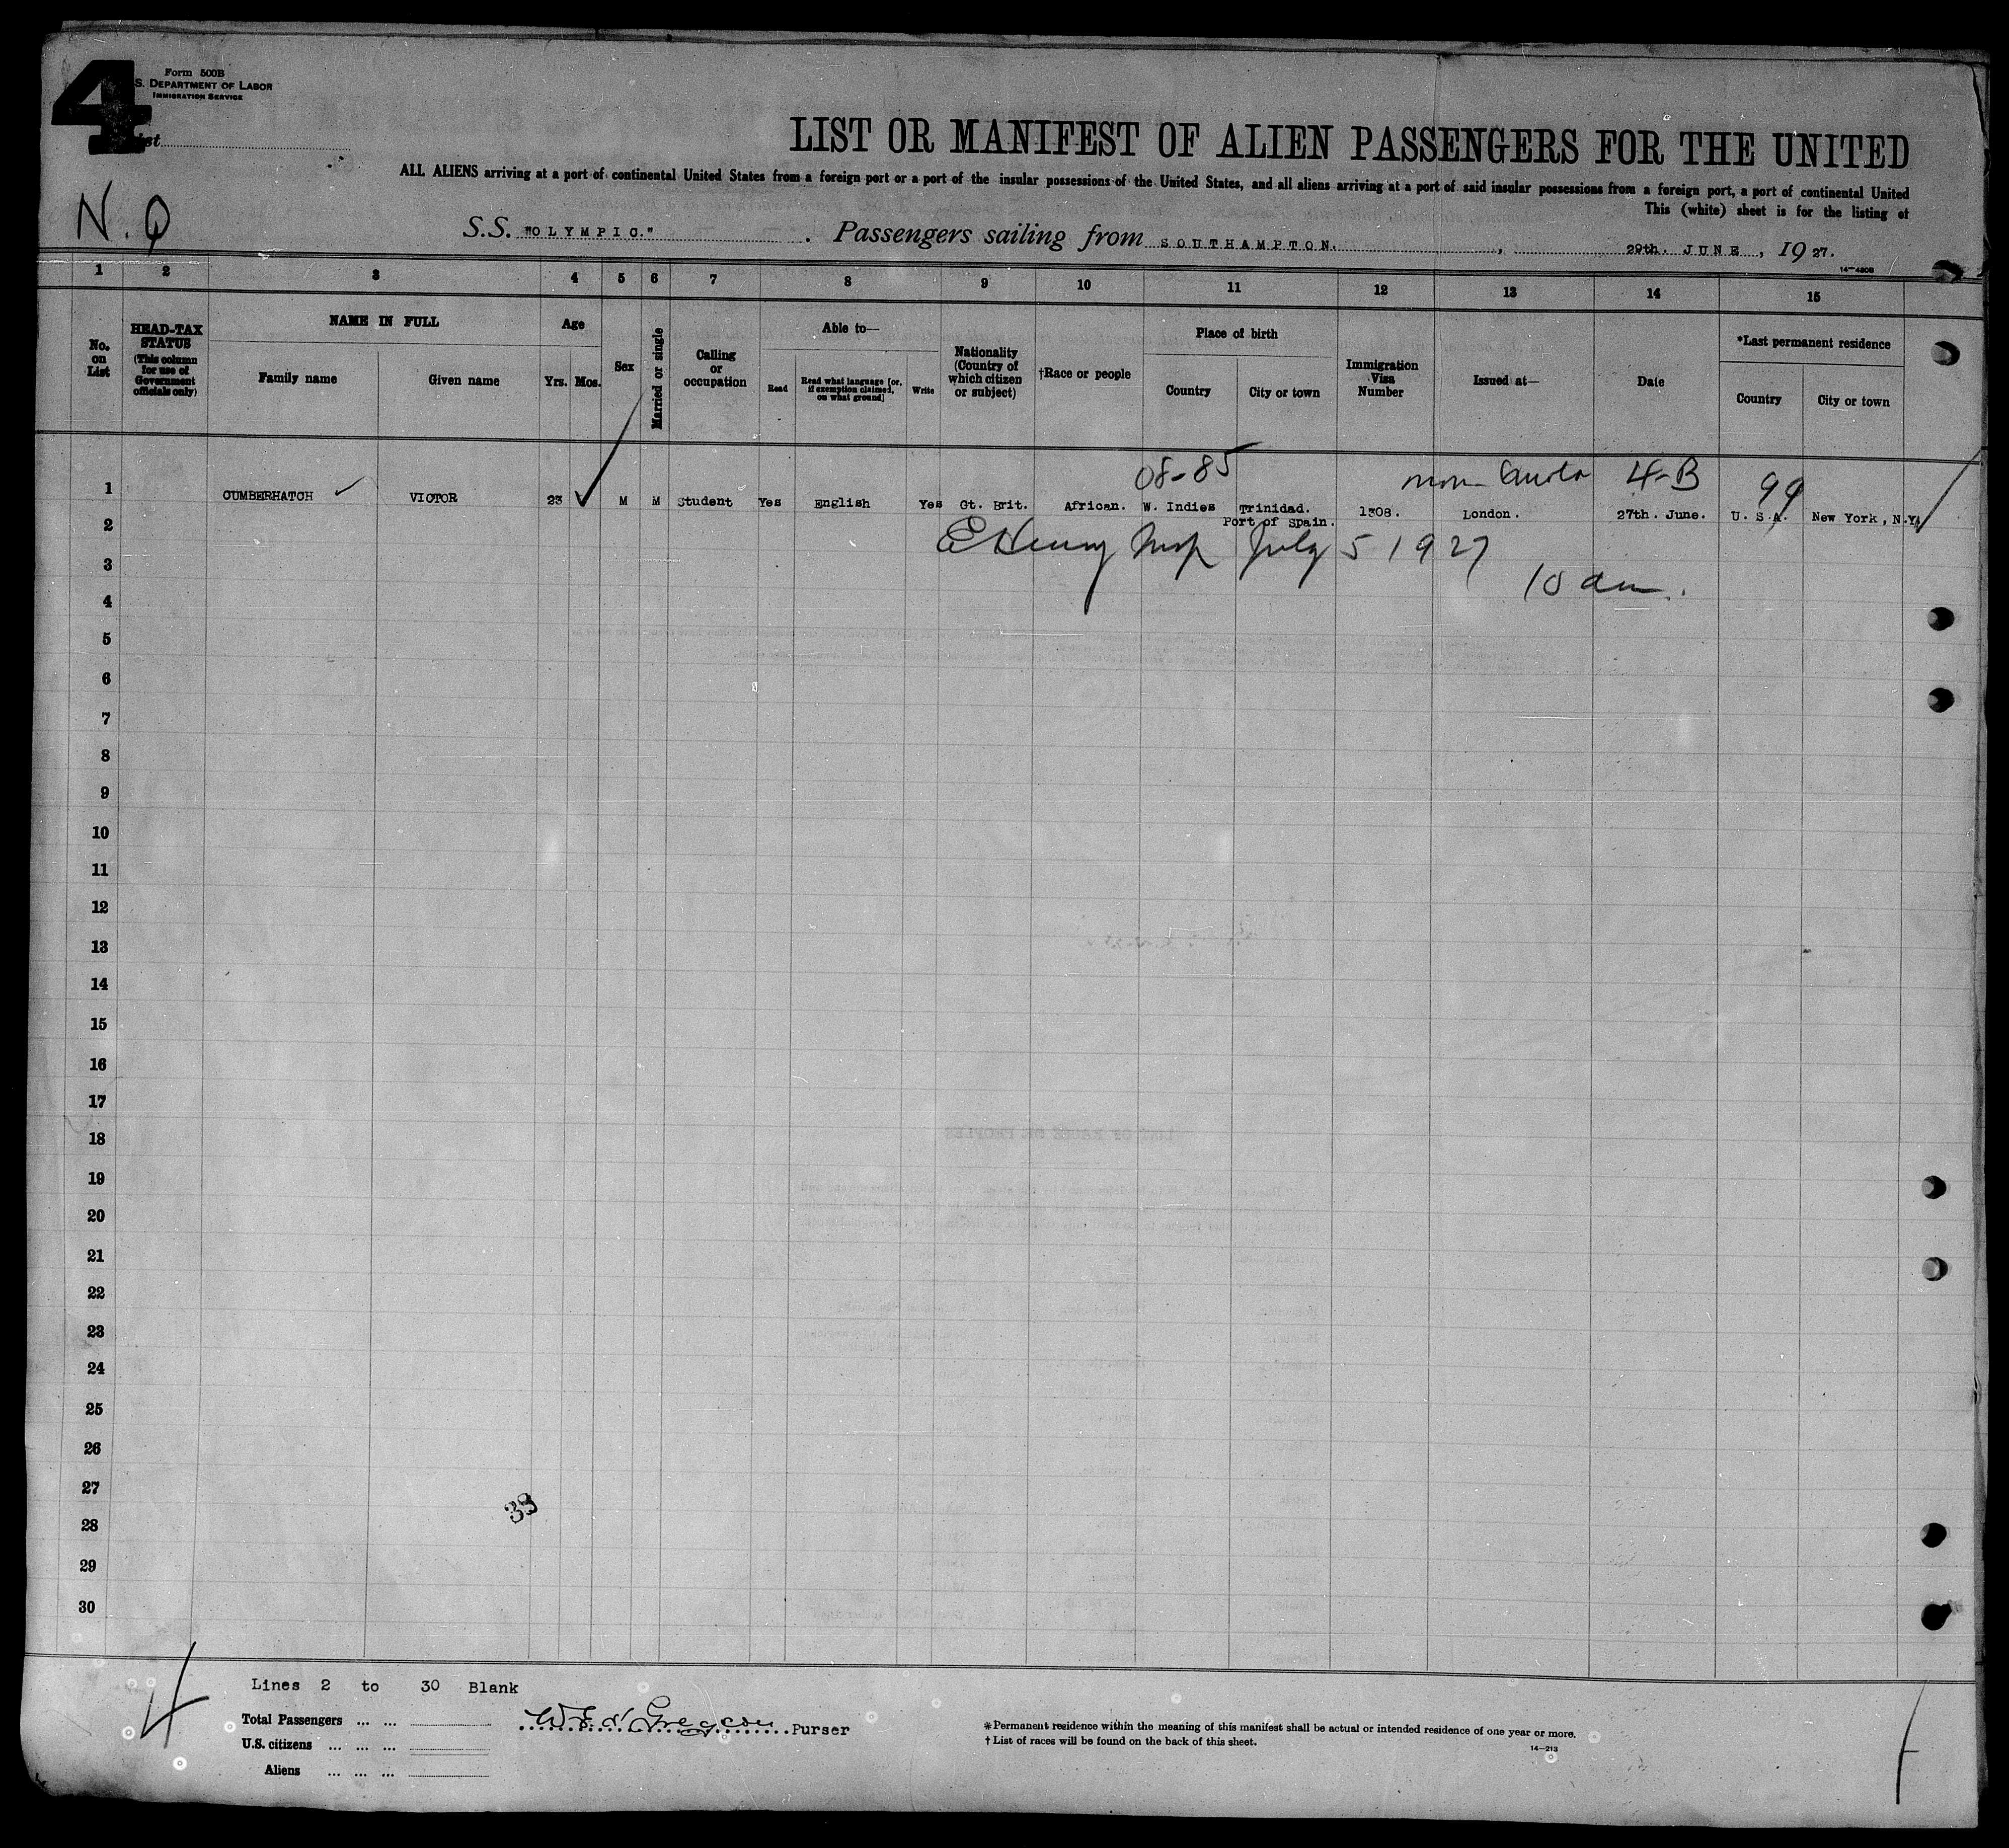 4
Form 500B
S. DEPARTMENT OF LABOR
IMMIGRATION SERVICE
LIST OR MANIFEST OF ALIEN PASSENGERS FOR THE UNITED
ALL ALIENS arriving at a port of continental United States from a foreign port or a port of the insular possessions of the United States, and all aliens arriving at a port of said insular possessions from a foreign port, a port of continental United
This (white) sheet is for the listing of
N.Q
S.S. "OLYMPIC." Passengers sailing from SOUTHAMPTON. , 29th. JUNE , 19 27.
14—480B
1 2 3 4 5 6 7 8 9 10 11 12 13 14 15
No. on List
HEAD-TAX STATUS
(This column for use of Government officials only)
NAME IN FULL
Family name
Given name
Age
Yrs. Mos.
Sex
Married or single
Calling or occupation
Able to—
Read
Read what language [or, if exemption claimed, on what ground]
Write
Nationality (Country of which citizen or subject)
†Race or people
Place of birth
Country
City or town
Immigration Visa Number
Issued at—
Date
*Last permanent residence
Country
City or town
08-85 non Quota 4-B 99
1 CUMBERHATCH VICTOR 23 M M Student Yes English Yes Gt. Brit. African. W. Indies Trinidad. 1308. London. 27th. June. U. S.A. New York, N.Y.
Port of Spain.
2
E Henry Insp July 5 1927
3
10 am.
4
5
6
7
8
9
10
11
12
13
14
15
16
17
18
19
20
21
22
23
24
25
26
27
33
28
29
30
4
Lines 2 to 30 Blank
Total Passengers ... ...
Purser
U.S. citizens ... ... ...
Aliens ... ... ...
*Permanent residence within the meaning of this manifest shall be actual or intended residence of one year or more.
†List of races will be found on the back of this sheet.
14—213